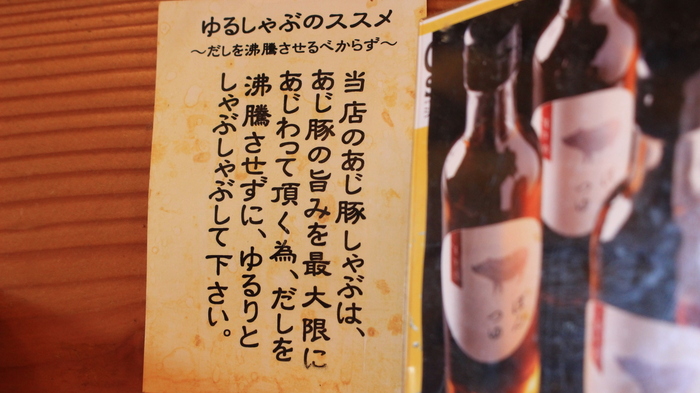 ゆるしゃぶのススメ
～だしを沸騰させるべからず～
当店のあじ豚しゃぶは、
あじ豚の旨みを最大限に
あじわって頂く為、だしを
沸騰させずに、ゆるりと
しゃぶしゃぶして下さい。